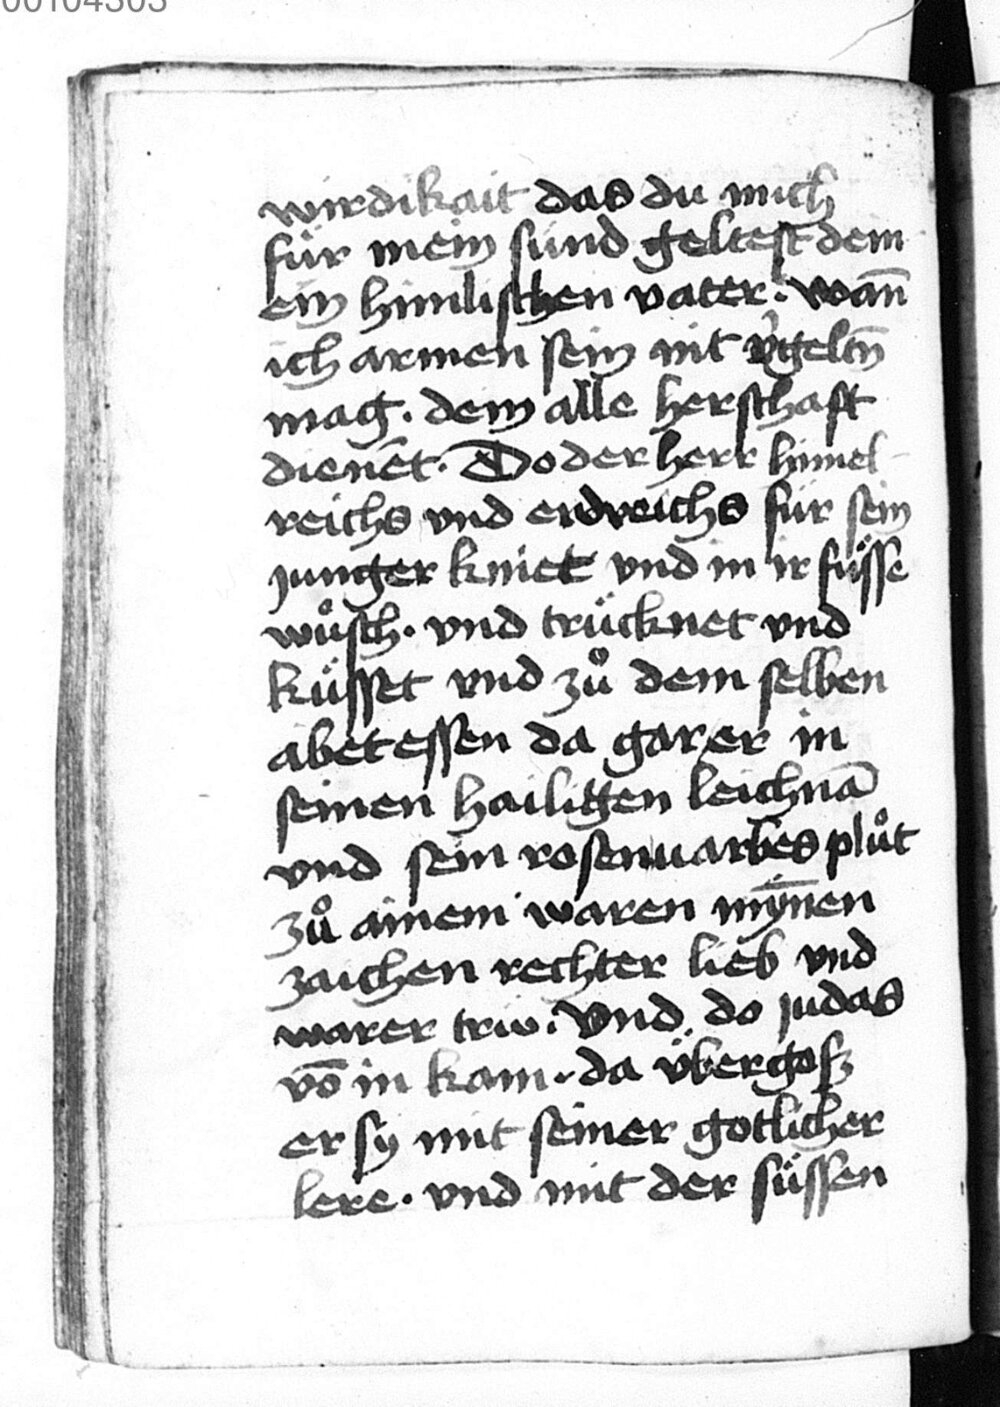 wirdikait das du mich
für mein sünd geltest dem
ein himlischen vater · wan̄
ich armen sein nit v̓geltn̄
mag · dem alle herschaft
dienēt · Do der herr himel
reichs vnd erdreichs für sein
junger kniet vnd in ir füsse
wůsch · vnd trücknet vnd
küsset vnd zů dem selben
abetessen da gar er in
seinen hailigen leichnā
vnd sein rosenuarbes plůt
zů ainem waren mȳnen
zaichen rechter lieb vnd
warer triw · Vnd do judas
vō in kam · da übergosz
er sy mit seiner gotlicher
lere · vnd mit der süssen